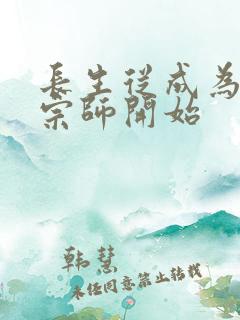 長生從成為
宗師開始
韩慧
未经同意禁止转载